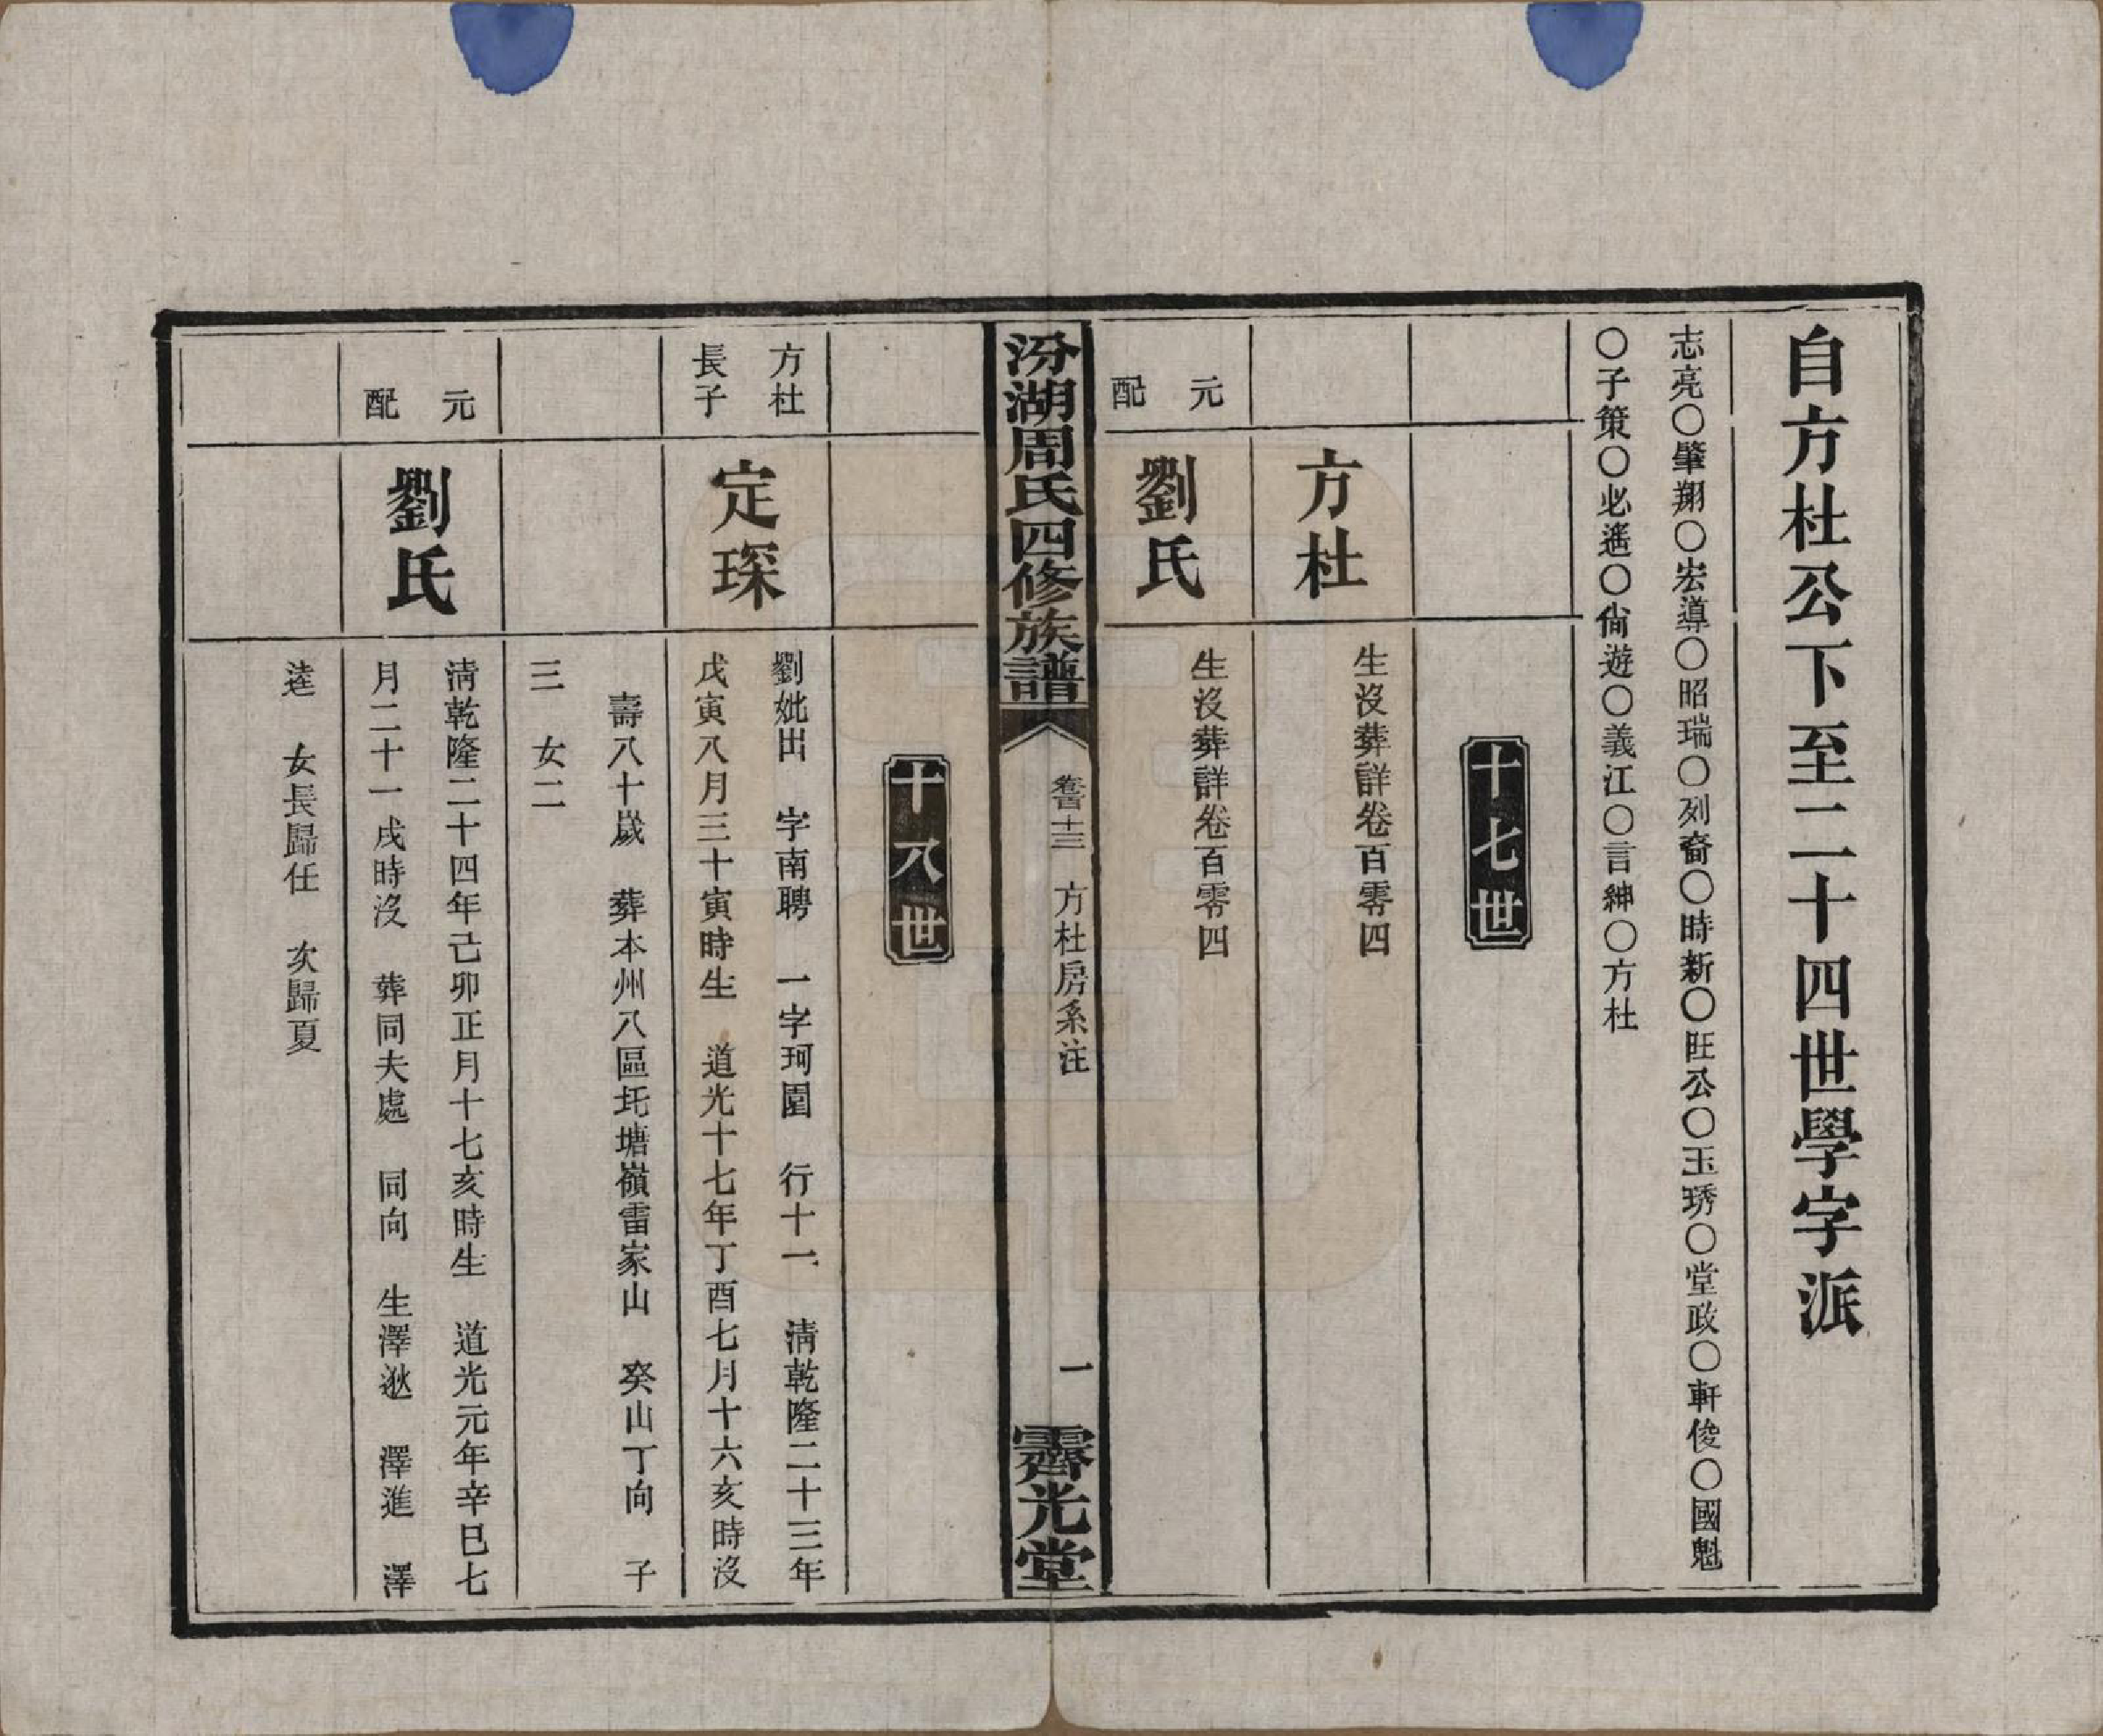 自方杜公下至二十四世學字派
志亮〇肇翔〇宏導〇昭瑞〇列裔〇時新〇旺公〇玉琇〇堂政〇軒俊〇國魁
〇子策〇必遙〇尙遊〇義江〇言紳〇方杜
十七世
方杜
生沒葬詳卷百零四
元配
劉氏
生沒葬詳卷百零四
汾湖周氏四修族譜
方杜房系注
一
霽光堂
十八世
方杜
長子
定琛
劉妣出　字南聘　一字珂園　行十一　淸乾隆二十三年
戊寅八月三十寅時生　道光十七年丁酉七月十六亥時沒
壽八十歲　葬本州八區圫塘嶺雷家山　癸山丁向　子
三　女二
元配
劉氏
淸乾隆二十四年己卯正月十七亥時生　道光元年辛巳七
月二十一戌時沒　葬同夫處　同向　生澤逖　澤進　澤
逵　女長歸任　次歸夏